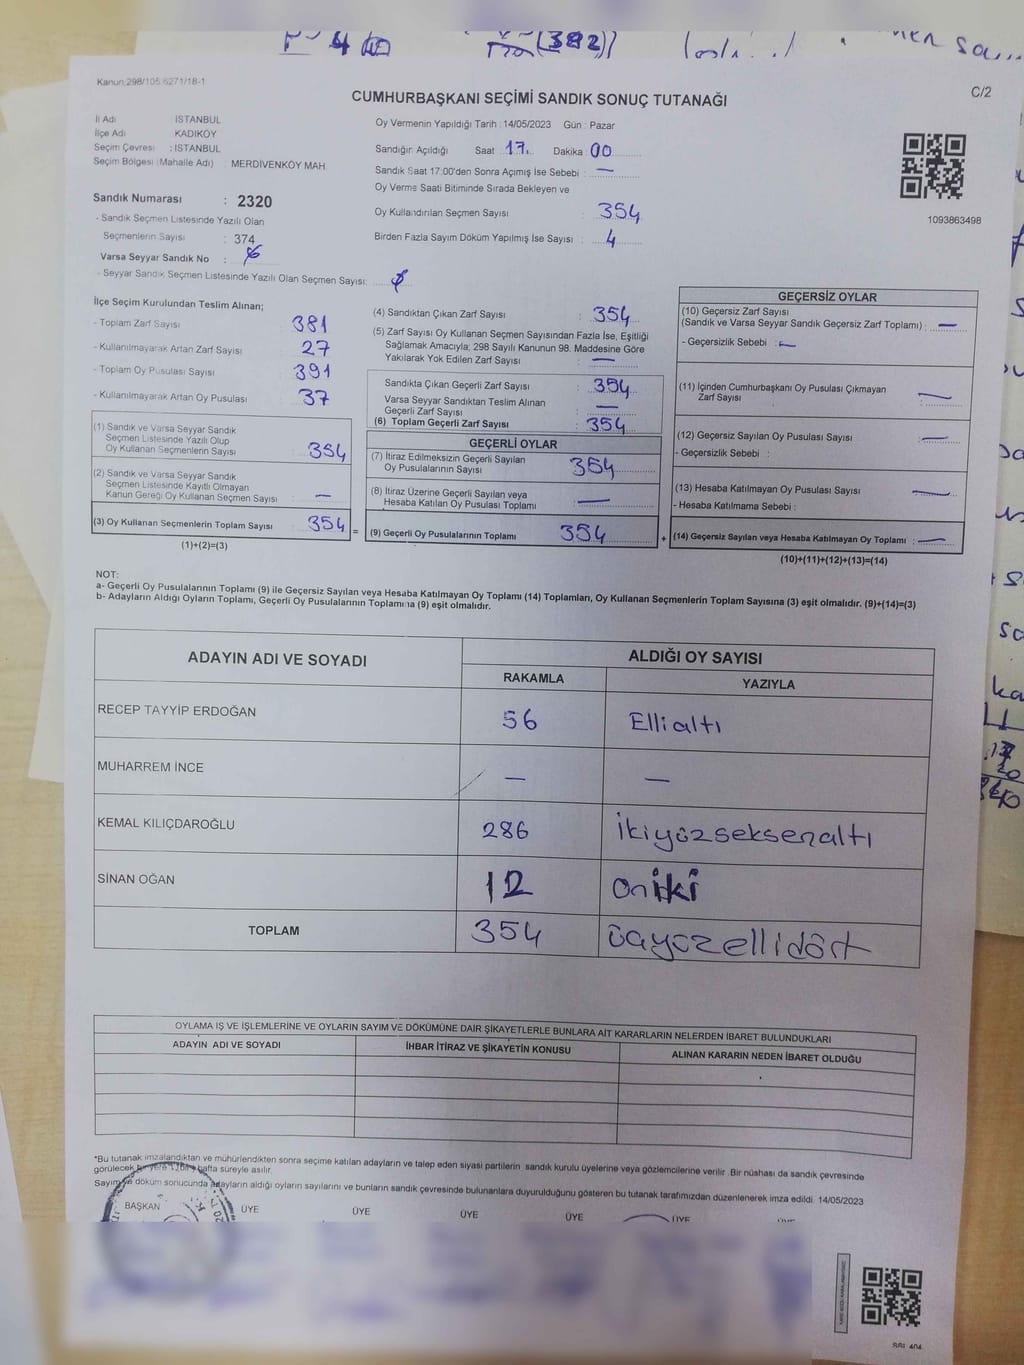 Kanun 298/105 6271/18-1
C/2
CUMHURBAŞKANI SEÇİMİ SANDIK SONUÇ TUTANAĞI
İl Adı İSTANBUL
İlçe Adı KADIKÖY
Seçim Çevresi : İSTANBUL
Seçim Bölgesi (Mahalle Adı) : MERDİVENKÖY MAH.
Sandık Numarası : 2320
- Sandık Seçmen Listesinde Yazılı Olan
Seçmenlerin Sayısı : 374
Varsa Seyyar Sandık No :
- Seyyar Sandık Seçmen Listesinde Yazılı Olan Seçmen Sayısı:
Oy Vermenin Yapıldığı Tarih : 14/05/2023 Gün : Pazar
Sandığın Açıldığı Saat 17. Dakika : 00
Sandık Saat 17:00'den Sonra Açımış İse Sebebi : —
Oy Verme Saati Bitiminde Sırada Bekleyen ve
Oy Kullandırılan Seçmen Sayısı : 354
Birden Fazla Sayım Döküm Yapılmış İse Sayısı : 4
1093863498
İlçe Seçim Kurulundan Teslim Alınan;
- Toplam Zarf Sayısı 381
- Kullanılmayarak Artan Zarf Sayısı 27
- Toplam Oy Pusulası Sayısı 391
- Kullanılmayarak Artan Oy Pusulası 37
(1) Sandık ve Varsa Seyyar Sandık
Seçmen Listesinde Yazılı Olup
Oy Kullanan Seçmenlerin Sayısı : 354
(2) Sandık ve Varsa Seyyar Sandık
Seçmen Listesinde Kayıtlı Olmayan
Kanun Gereği Oy Kullanan Seçmen Sayısı : —
(3) Oy Kullanan Seçmenlerin Toplam Sayısı : 354 =
(1)+(2)=(3)
(4) Sandıktan Çıkan Zarf Sayısı : 354
(5) Zarf Sayısı Oy Kullanan Seçmen Sayısından Fazla İse, Eşitliği
Sağlamak Amacıyla; 298 Sayılı Kanunun 98. Maddesine Göre
Yakılarak Yok Edilen Zarf Sayısı : —
Sandıkta Çıkan Geçerli Zarf Sayısı : 354
Varsa Seyyar Sandıktan Teslim Alınan
Geçerli Zarf Sayısı : —
(6) Toplam Geçerli Zarf Sayısı : 354
GEÇERLİ OYLAR
(7) İtiraz Edilmeksizin Geçerli Sayılan
Oy Pusulalarının Sayısı : 354
(8) İtiraz Üzerine Geçerli Sayılan veya
Hesaba Katılan Oy Pusulası Toplamı : —
(9) Geçerli Oy Pusulalarının Toplamı 354 +
GEÇERSİZ OYLAR
(10) Geçersiz Zarf Sayısı
(Sandık ve Varsa Seyyar Sandık Geçersiz Zarf Toplamı) : —
- Geçersizlik Sebebi : —
(11) İçinden Cumhurbaşkanı Oy Pusulası Çıkmayan
Zarf Sayısı : —
(12) Geçersiz Sayılan Oy Pusulası Sayısı : —
- Geçersizlik Sebebi :
(13) Hesaba Katılmayan Oy Pusulası Sayısı : —
- Hesaba Katılmama Sebebi :
(14) Geçersiz Sayılan veya Hesaba Katılmayan Oy Toplamı : —
(10)+(11)+(12)+(13)=(14)
NOT:
a- Geçerli Oy Pusulalarının Toplamı (9) ile Geçersiz Sayılan veya Hesaba Katılmayan Oy Toplamı (14) Toplamları, Oy Kullanan Seçmenlerin Toplam Sayısına (3) eşit olmalıdır. (9)+(14)=(3)
b- Adayların Aldığı Oyların Toplamı, Geçerli Oy Pusulalarının Toplamına (9) eşit olmalıdır.
ADAYIN ADI VE SOYADI ALDIĞI OY SAYISI
RAKAMLA YAZIYLA
RECEP TAYYİP ERDOĞAN 56 Ellialtı
MUHARREM İNCE — —
KEMAL KILIÇDAROĞLU 286 ikiyüzseksenaltı
SİNAN OĞAN 12 oniki
TOPLAM 354 üçyüzellidört
OYLAMA İŞ VE İŞLEMLERİNE VE OYLARIN SAYIM VE DÖKÜMÜNE DAİR ŞİKAYETLERLE BUNLARA AİT KARARLARIN NELERDEN İBARET BULUNDUKLARI
ADAYIN ADI VE SOYADI İHBAR İTİRAZ VE ŞİKAYETİN KONUSU ALINAN KARARIN NEDEN İBARET OLDUĞU
*Bu tutanak imzalandıktan ve mühürlendikten sonra seçime katılan adayların ve talep eden siyasi partilerin sandık kurulu üyelerine veya gözlemcilerine verilir. Bir nüshası da sandık çevresinde
görülecek bir yere 1 hafta süreyle asılır.
Sayım ve döküm sonucunda adayların aldığı oyların sayılarını ve bunların sandık çevresinde bulunanlara duyurulduğunu gösteren bu tutanak tarafımızdan düzenlenerek imza edildi. 14/05/2023
BAŞKAN ÜYE ÜYE ÜYE ÜYE ÜYE